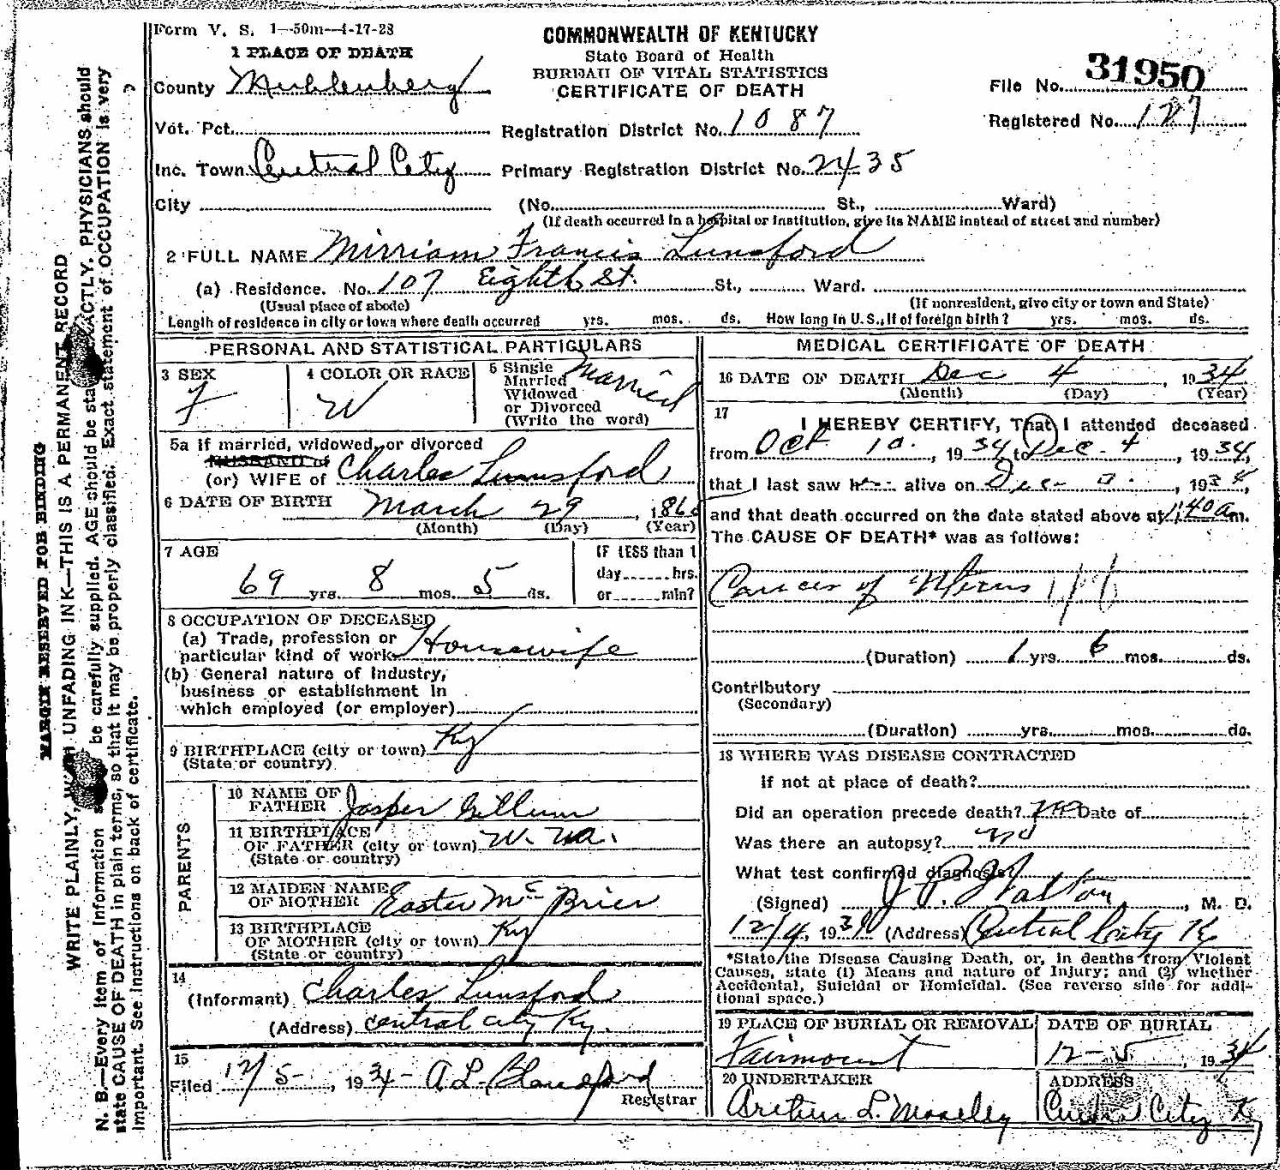 Form V. S. 1—50m—4-17-28
COMMONWEALTH OF KENTUCKY
State Board of Health
BUREAU OF VITAL STATISTICS
CERTIFICATE OF DEATH
File No. 31950
Registered No. 127
1 PLACE OF DEATH
County Muhlenberg
Vot. Pct.
Registration District No. 1087
Inc. Town Central City
Primary Registration District No. 2435
City (No. St., Ward)
(If death occurred in a hospital or institution, give its NAME instead of street and number)
2 FULL NAME Mirriam Francis Lunsford
(a) Residence. No. 107 Eighth St. St., Ward.
(Usual place of abode) (If nonresident, give city or town and State)
Length of residence in city or town where death occurred yrs. mos. ds. How long in U. S., if of foreign birth? yrs. mos. ds.
PERSONAL AND STATISTICAL PARTICULARS
3 SEX F
4 COLOR OR RACE W
5 Single Married Widowed or Divorced (Write the word) Married
5a If married, widowed, or divorced
HUSBAND of
(or) WIFE of Charles Lunsford
6 DATE OF BIRTH March 29, 186
(Month) (Day) (Year)
7 AGE
69 yrs. 8 mos. 5 ds.
IF LESS than 1
day hrs.
or min?
8 OCCUPATION OF DECEASED
(a) Trade, profession or
particular kind of work Housewife
(b) General nature of industry,
business or establishment in
which employed (or employer)
9 BIRTHPLACE (city or town) Ky
(State or country)
PARENTS
10 NAME OF
FATHER Jasper Gillum
11 BIRTHPLACE
OF FATHER (city or town) W. Va.
(State or country)
12 MAIDEN NAME
OF MOTHER Easter McBrier
13 BIRTHPLACE
OF MOTHER (city or town) Ky
(State or country)
14
(Informant) Charles Lunsford
(Address) Central City Ky.
15
Filed 12/5, 1934 A L Blandford
Registrar
MEDICAL CERTIFICATE OF DEATH
16 DATE OF DEATH Dec 4, 1934
(Month) (Day) (Year)
17
I HEREBY CERTIFY, That I attended deceased
from Oct 10, 1934 to Dec. 4, 1934,
that I last saw h alive on Dec, 1934,
and that death occurred on the date stated above at 1:40 a m.
The CAUSE OF DEATH* was as follows:
Cancer of Uterus
(Duration) 1 yrs. 6 mos. ds.
Contributory
(Secondary)
(Duration) yrs. mos. ds.
18 WHERE WAS DISEASE CONTRACTED
If not at place of death?
Did an operation precede death? no Date of
Was there an autopsy? no
What test confirmed diagnosis?
(Signed) J. P. Walton, M. D.
12/4, 1934 (Address) Central City Ky
*State the Disease Causing Death, or, in deaths from Violent
Causes, state (1) Means and nature of Injury; and (2) whether
Accidental, Suicidal or Homicidal. (See reverse side for addi-
tional space.)
19 PLACE OF BURIAL OR REMOVAL
Fairmount
DATE OF BURIAL
12-5, 1934
20 UNDERTAKER
Arthur L. Moseley
ADDRESS
Central City Ky
MARGIN RESERVED FOR BINDING
WRITE PLAINLY, WITH UNFADING INK—THIS IS A PERMANENT RECORD
N. B.—Every item of information should be carefully supplied. AGE should be stated EXACTLY. PHYSICIANS should
state CAUSE OF DEATH in plain terms, so that it may be properly classified. Exact statement of OCCUPATION is very
important. See instructions on back of certificate.